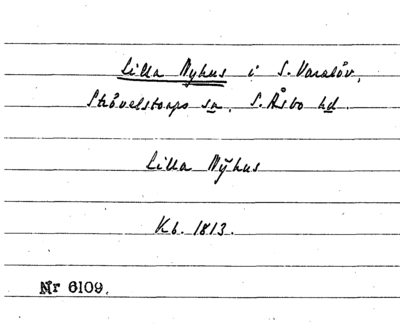 Lilla Nyhus i S. Varalöv,
Strövelstorps sn. S. Åsbo hd.
Lilla Nÿhus
Kb. 1813.
Nr 6109.